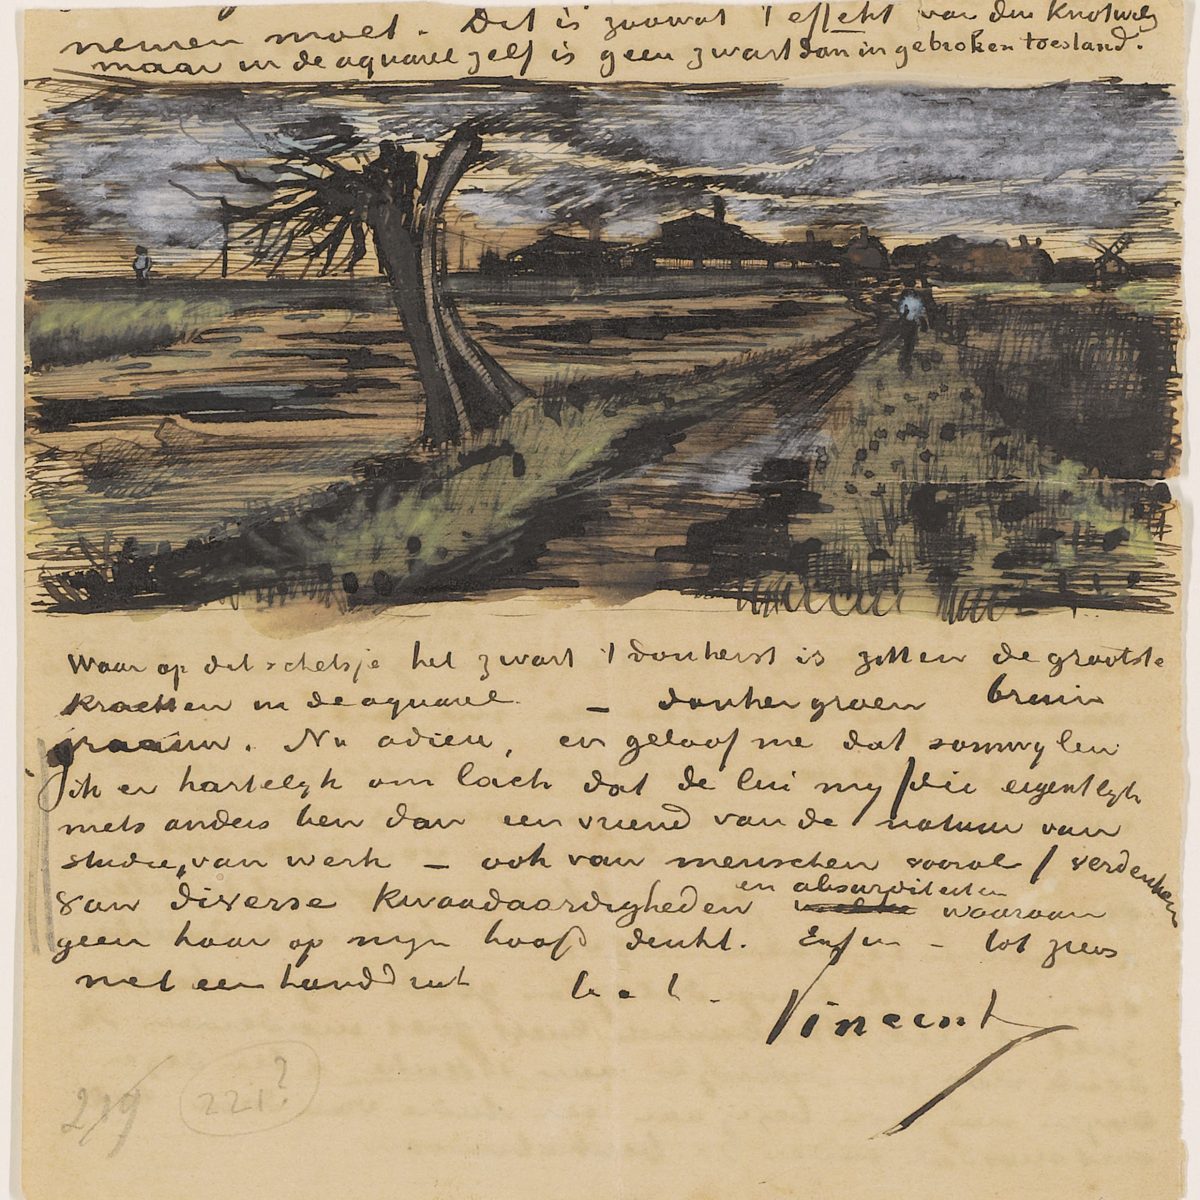 nemen moet. Dit is zoowat 't effekt van den Knotwilg
maar in de aquarel zelf is geen zwart dan in gebroken toestand.
Waar op dit schetsje het zwart 't donkerst is zitten de grootste
krachten in de aquarel – donkergroen bruin
graauw. Nu adieu, en geloof me dat somwylen
ik er hartelyk om lach dat de lui my /die eigentlyk
niets anders ben dan een vriend van de natuur van
studie, van werk – ook van menschen vooral/ verdenken
en absurditeiten
van diverse kwaadaardigheden waaraan
geen haar op myn hoofd denkt. Enfin – tot ziens
met een handdruk t. à t.
Vincent
219 221?